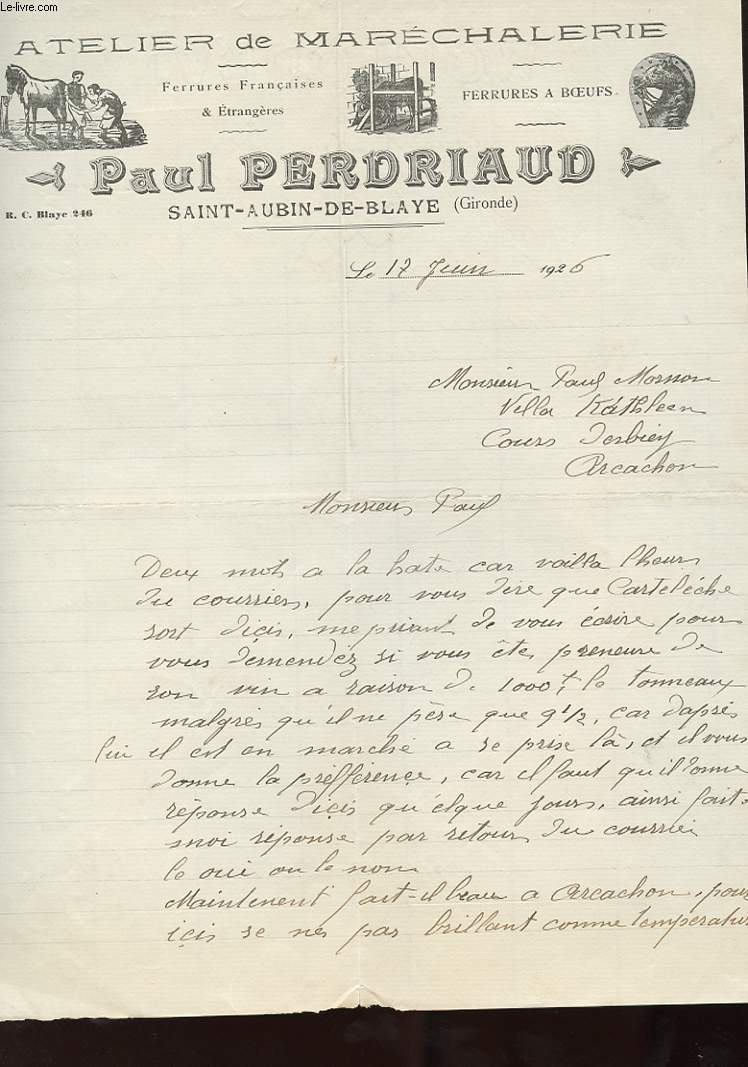 Le-livre.com
ATELIER de MARÉCHALERIE
Ferrures Françaises
& Étrangères
FERRURES A BŒUFS
Paul PERDRIAUD
R. C. Blaye 246
SAINT-AUBIN-DE-BLAYE (Gironde)
Le 17 Juin 1926
Monsieur Paul Mornon
Villa Kathleen
Cours Desbiey
Arcachon
Monsieur Paul
Deux mots a la hate car voilla lheure
du courriers, pour vous dire que Carteléche
sort diçis, me priant de vous écrire pour
vous demendéz si vous êtes preneure de
son vin a raison de 1000f le tonneaux
malgrés qu'il ne pèse que 9 1/2, car daprés
lui il est en marché a se prise là, et il vous
donne la préfférençe, car il faut qu'il donne
réponse diçis qu'élque jours, ainsi fait-
moi réponse par retour du courrié
le oui ou le non
Maintenent fait-il beau a Arcachon, pour
içis se nes pas brillant comme temperature